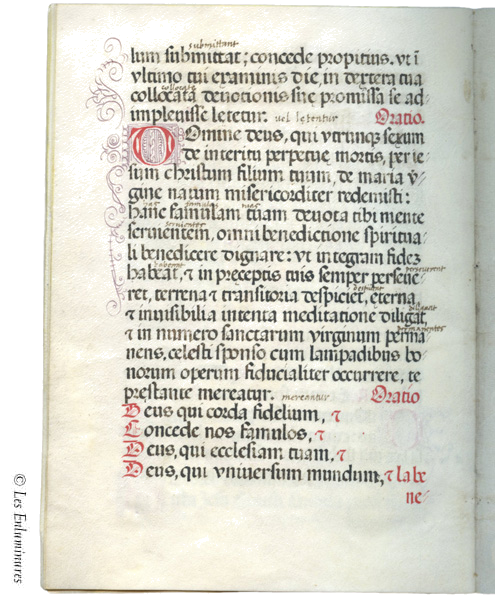 submittant
lum submittat; concede propitius. vt ĩ
vltimo tui examinis die, in dextera tua
collocate
collocata deuotionis suę promissa se ad-
impleuisse letetur. vel lętentur Oratio.
Domine deus, qui vtrunque sexum
de interitu perpetuę mortis, per ie-
sum christum filium tuum, de maria v-
gine natum misericorditer redemisti:
has famulas tuas
hanc famulam tuam deuota tibi mente
seruientes
seruientem, omni benedictione spiritua-
li benedicere dignare: vt integram fidez
habeant perseuerent
habeat, & in preceptis tuis semper perseue-
despiciant
ret, terrena & transitoria despiciet, eterna
diligant
& inuisibilia intenta meditatione diligat,
permanentes
& in numero sanctarum virginum perma-
nens, celesti sponso cum lampadibus bo-
norum operum fiducialiter occurrere, te
prestante mereatur. mereantur Oratio
Deus qui corda fidelium, &
Concede nos famulos, &
Deus, qui ecclesiam tuam, &
Deus, qui vniuersum mundum, & la be
ne-
© Les Enluminures